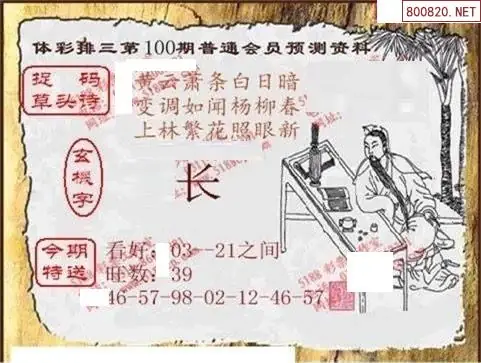 800820.NET
体彩排三第100期普通会员预测资料
捉码
草头诗
云萧条白日暗
变调如闻杨柳春
上林繁花照眼新
玄機字
长
今期
特送
看好:03--21之间
旺数:39
46-57-98-02-12-46-57